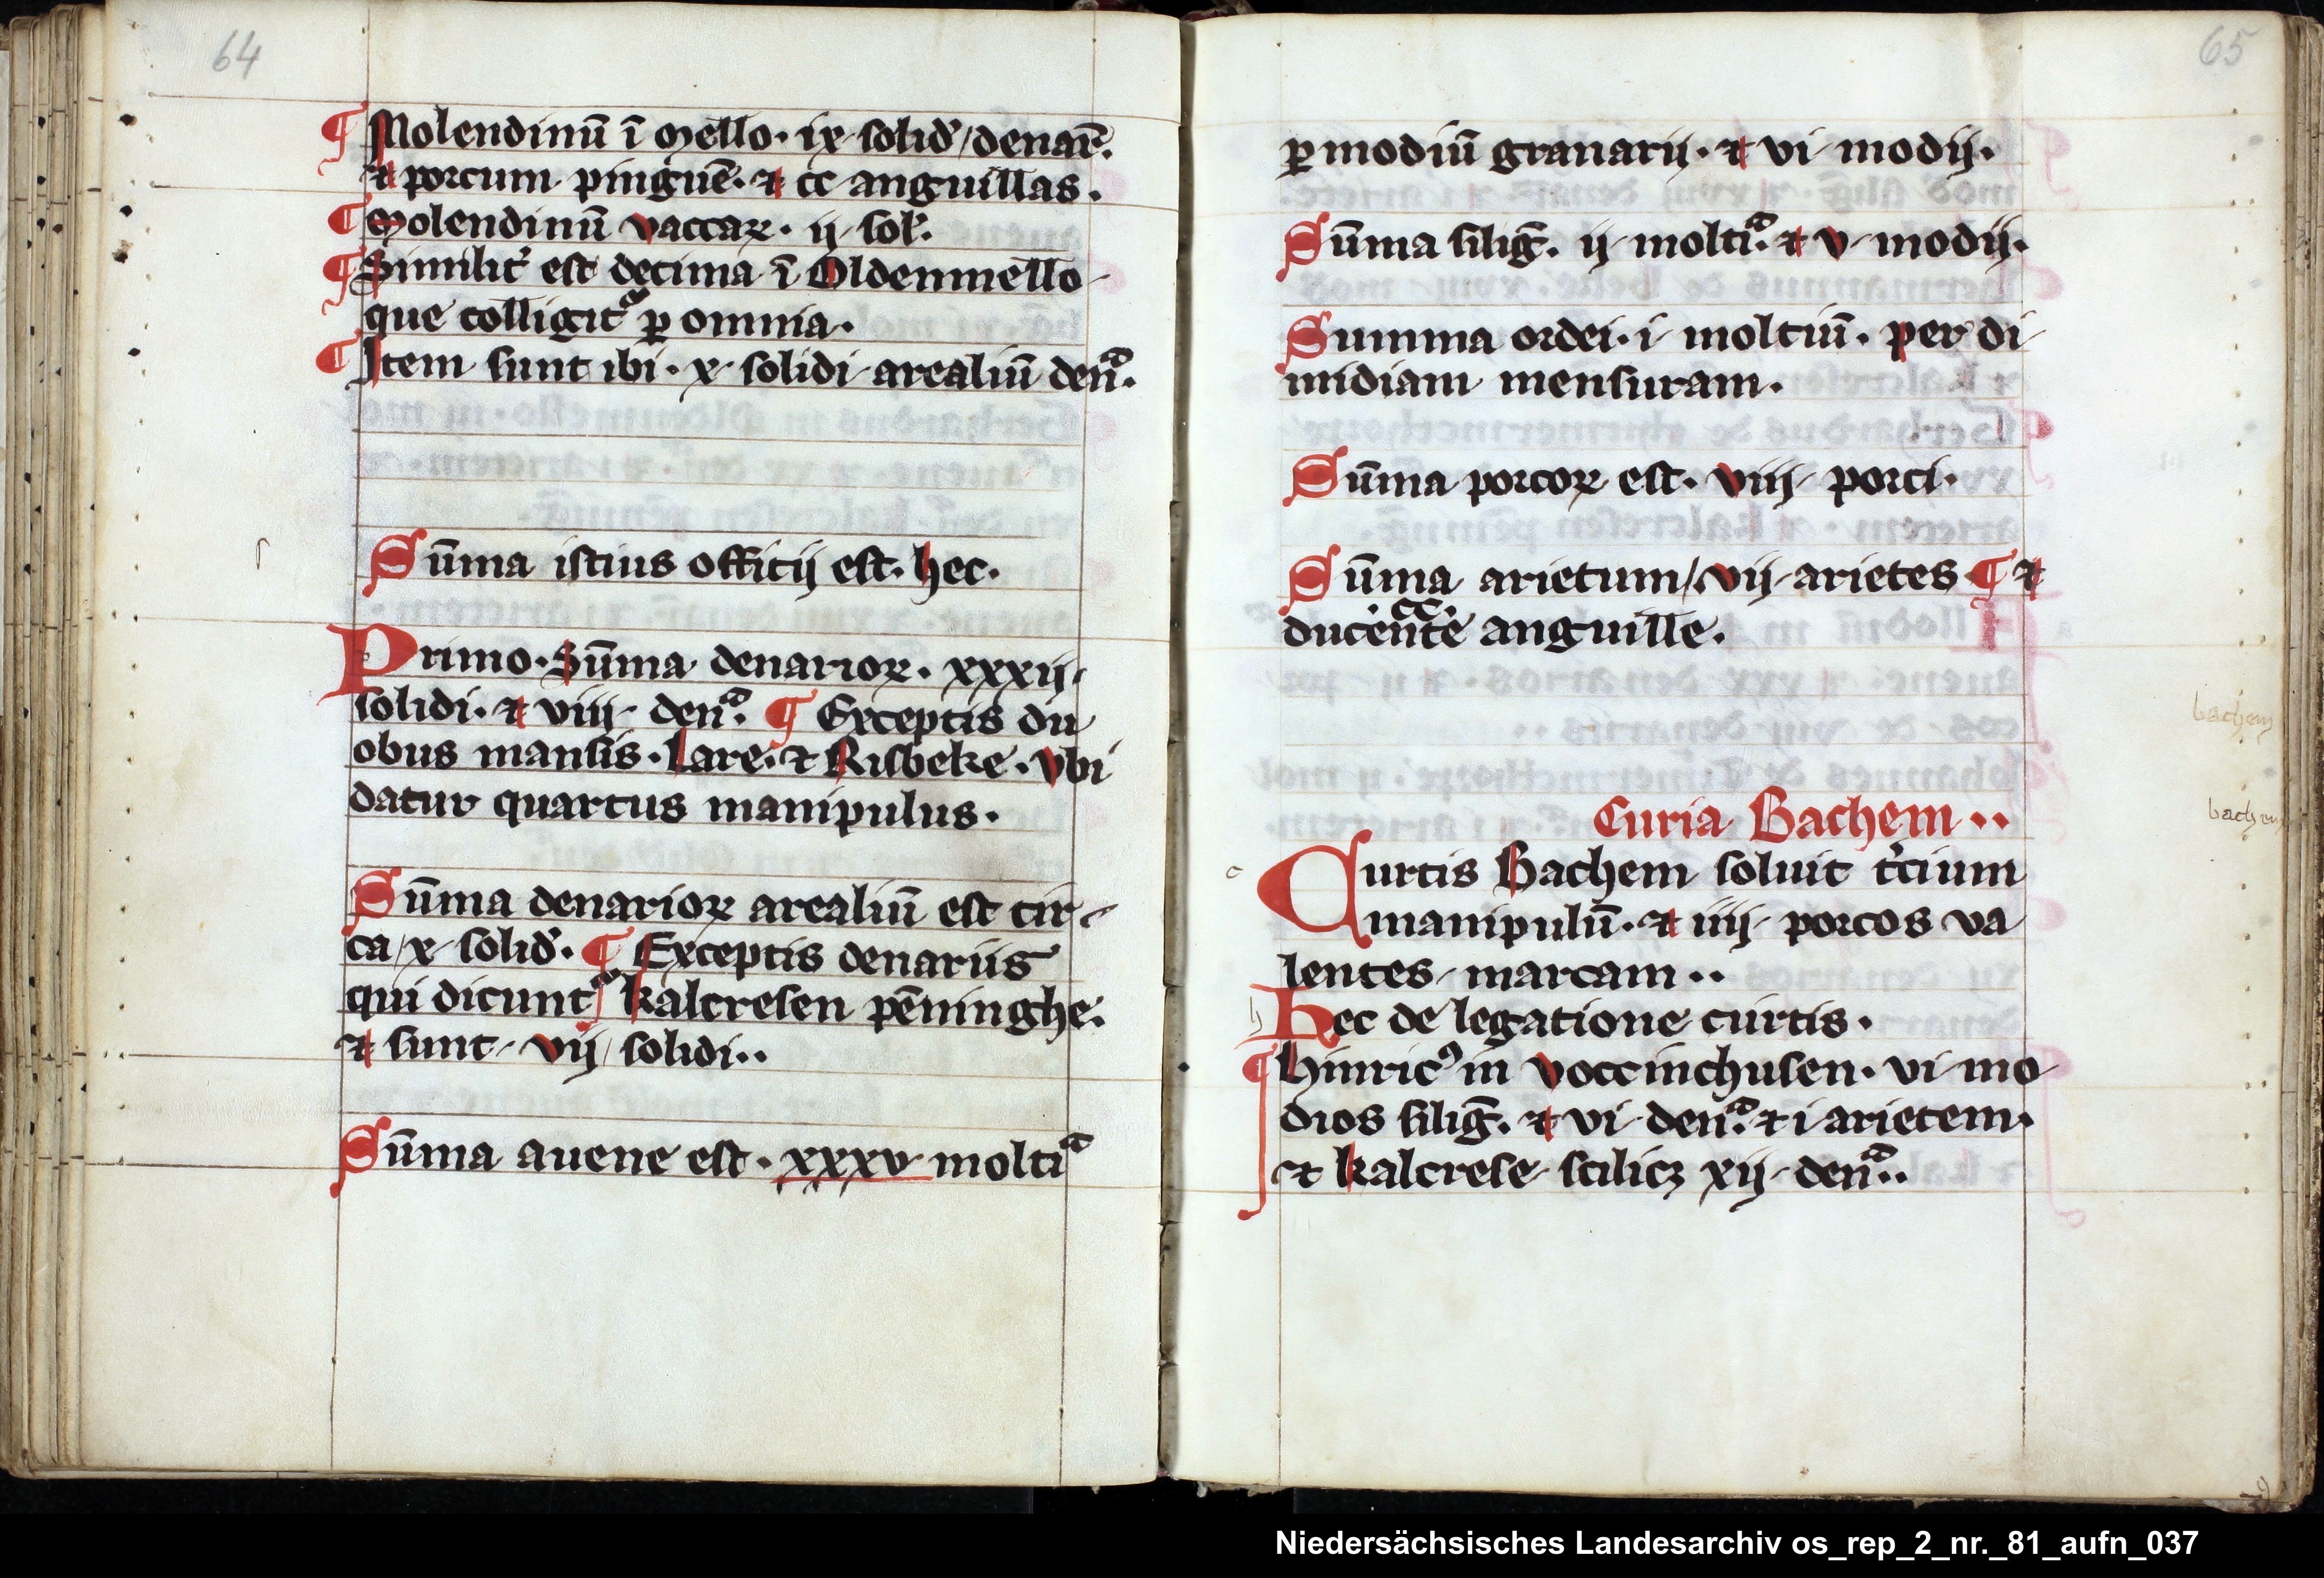 64
¶ Molendinū ī mello · ix solid' / denar̄ ·
⁊ porcum pinguē · ⁊ cc anguillas ·
¶ molendinū vaccaꝝ · ij sol' ·
¶ Similit' est decima ī Oldenmello
que colligit᷑ ꝑ omnia ·
¶ Item sunt ibi · x solidi arealiū denᷓ ·
Sūma istius officij est · hec ·
Primo · Sūma denarioꝝ · xxxij
solidi · ⁊ viij denᷓ · ¶ Exceptis du
obus mansis · Lare · ⁊ Risbeke · vbi
datur quartus manipulus ·
Sūma denarioꝝ arealiū est cir
ca / x solid' · ¶ Exceptis denariis
qui dicunt᷑ kalcresen pēninghe ·
⁊ sunt vij solidi ··
Sūma auene est · xxxv moltiᷓ
65
ꝑ modiū granarij · ⁊ vi modij ·
Sūma siliḡ · ij moltiᷓ · ⁊ v modij ·
Summa ordei · i moltiū · per di
midiam mensuram ·
Sūma porcoꝝ est · viij porci ·
Sūma arietum / vij arietes ¶ ⁊
· cc ·
ducente anguille ·
bachem
Curia Bachem ··
bachem
Curtis Bachem soluit t'cium
manipulū · ⁊ iiij porcos va
lentes marcam ··
Hec de legatione curtis ·
¶ Hinricꝰ in voccinchusen · vi mo
dios siliḡ · ⁊ vi denᷓ · ⁊ i arietem ·
⁊ kalcrese scilicꝫ xij denᷓ ··
Niedersächsisches Landesarchiv os_rep_2_nr._81_aufn_037